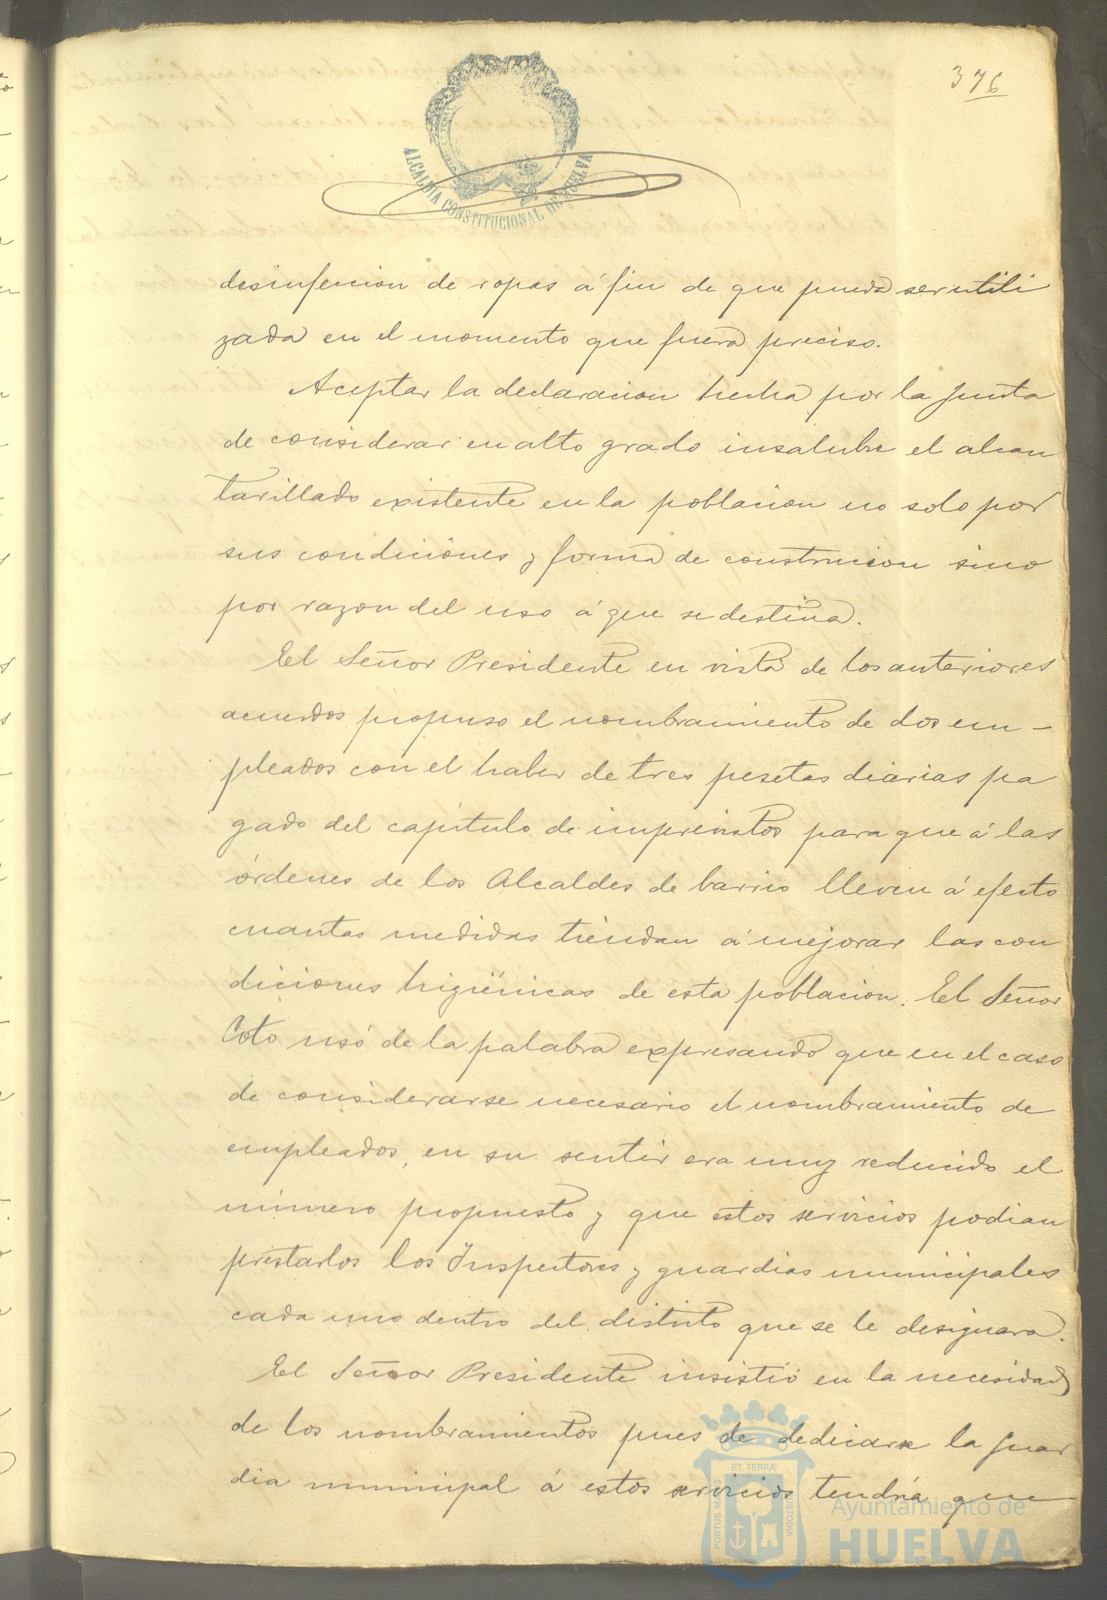 376
ALCALDIA CONSTITUCIONAL DE HUELVA
desinfeccion de ropas á fin de que pueda ser utili
zada en el momento que fuera preciso.
Aceptar la declaracion hecha por la Junta
de considerar en alto grado insalubre el alcan
tarillado existente en la poblacion no solo por
sus condiciones y forma de construccion sino
por razon del uso á que se destina.
El Señor Presidente en vista de los anteriores
acuerdos propuso el nombramiento de dos em-
pleados con el haber de tres pesetas diarias pa
gado del capítulo de imprevistos para que á las
órdenes de los Alcaldes de barrio lleven á efecto
cuantas medidas tiendan á mejorar las con
diciones higiénicas de esta poblacion. El Señor
Coto usó de la palabra expresando que en el caso
de considerarse necesario el nombramiento de
empleados, en su sentir era muy reducido el
número propuesto y que estos servicios podian
prestarlos los Inspectores y guardias municipales
cada uno dentro del distrito que se le designara.
El Señor Presidente insistió en la necesidad
de los nombramientos pues de dedicarse la Guar
dia municipal á estos servicios tendria que
PORTUS MARIS ET TERRÆ CUSTODIA
Ayuntamiento de
HUELVA